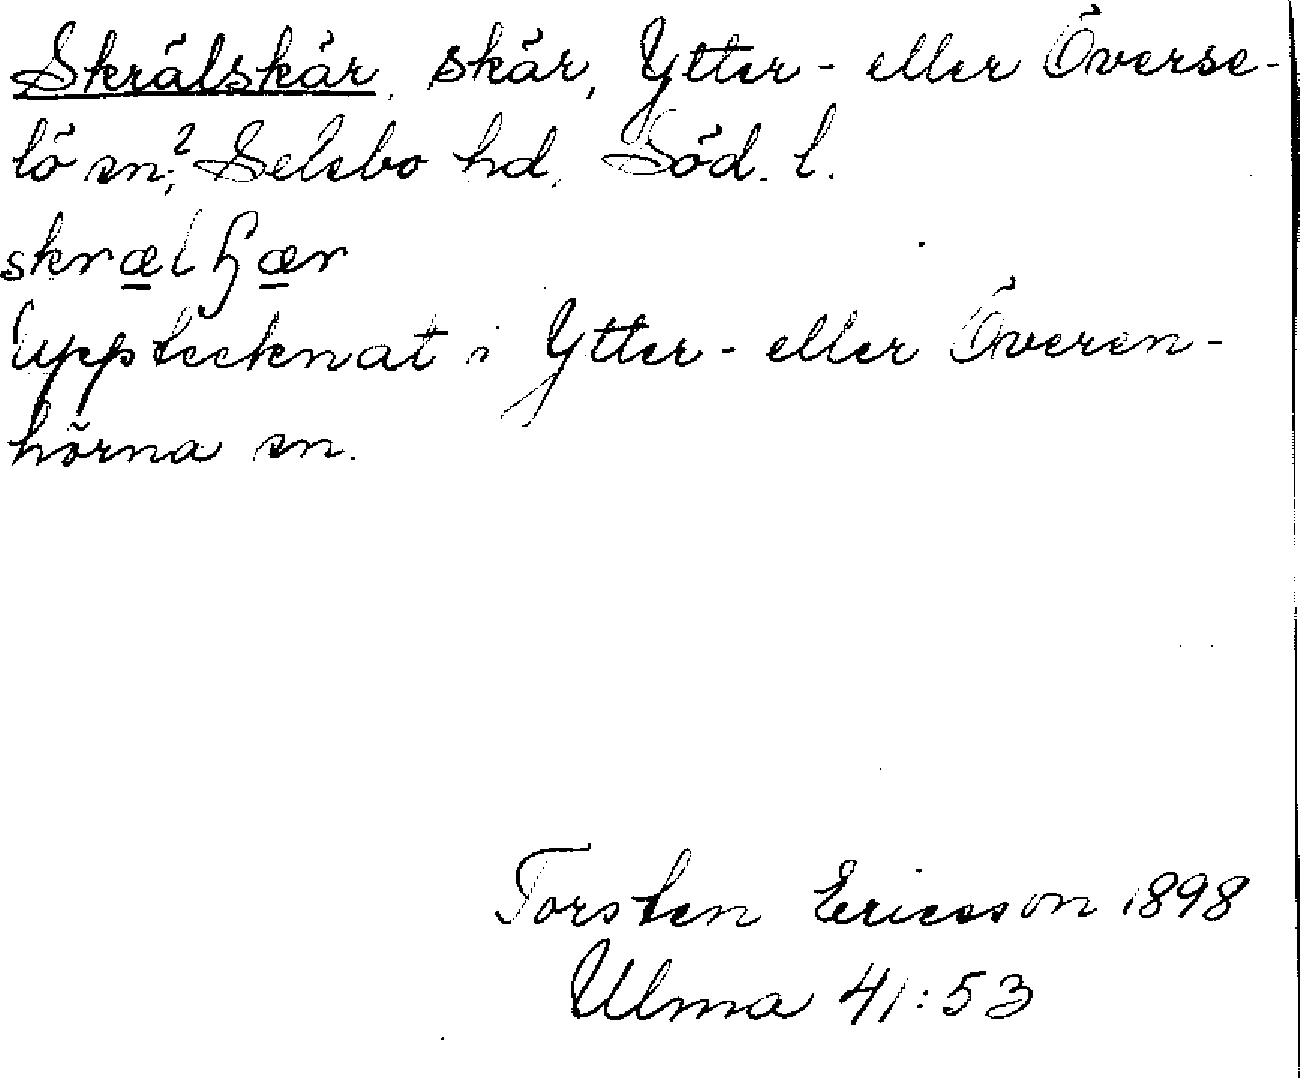 Skrälskär, skär, Ytter- eller Överse-
lö sn?, Selebo hd, Söd. l.
skrælꞕær
Upptecknat i Ytter- eller Överen-
hörna sn.
Torsten Ericsson 1898
Ulma 41:53